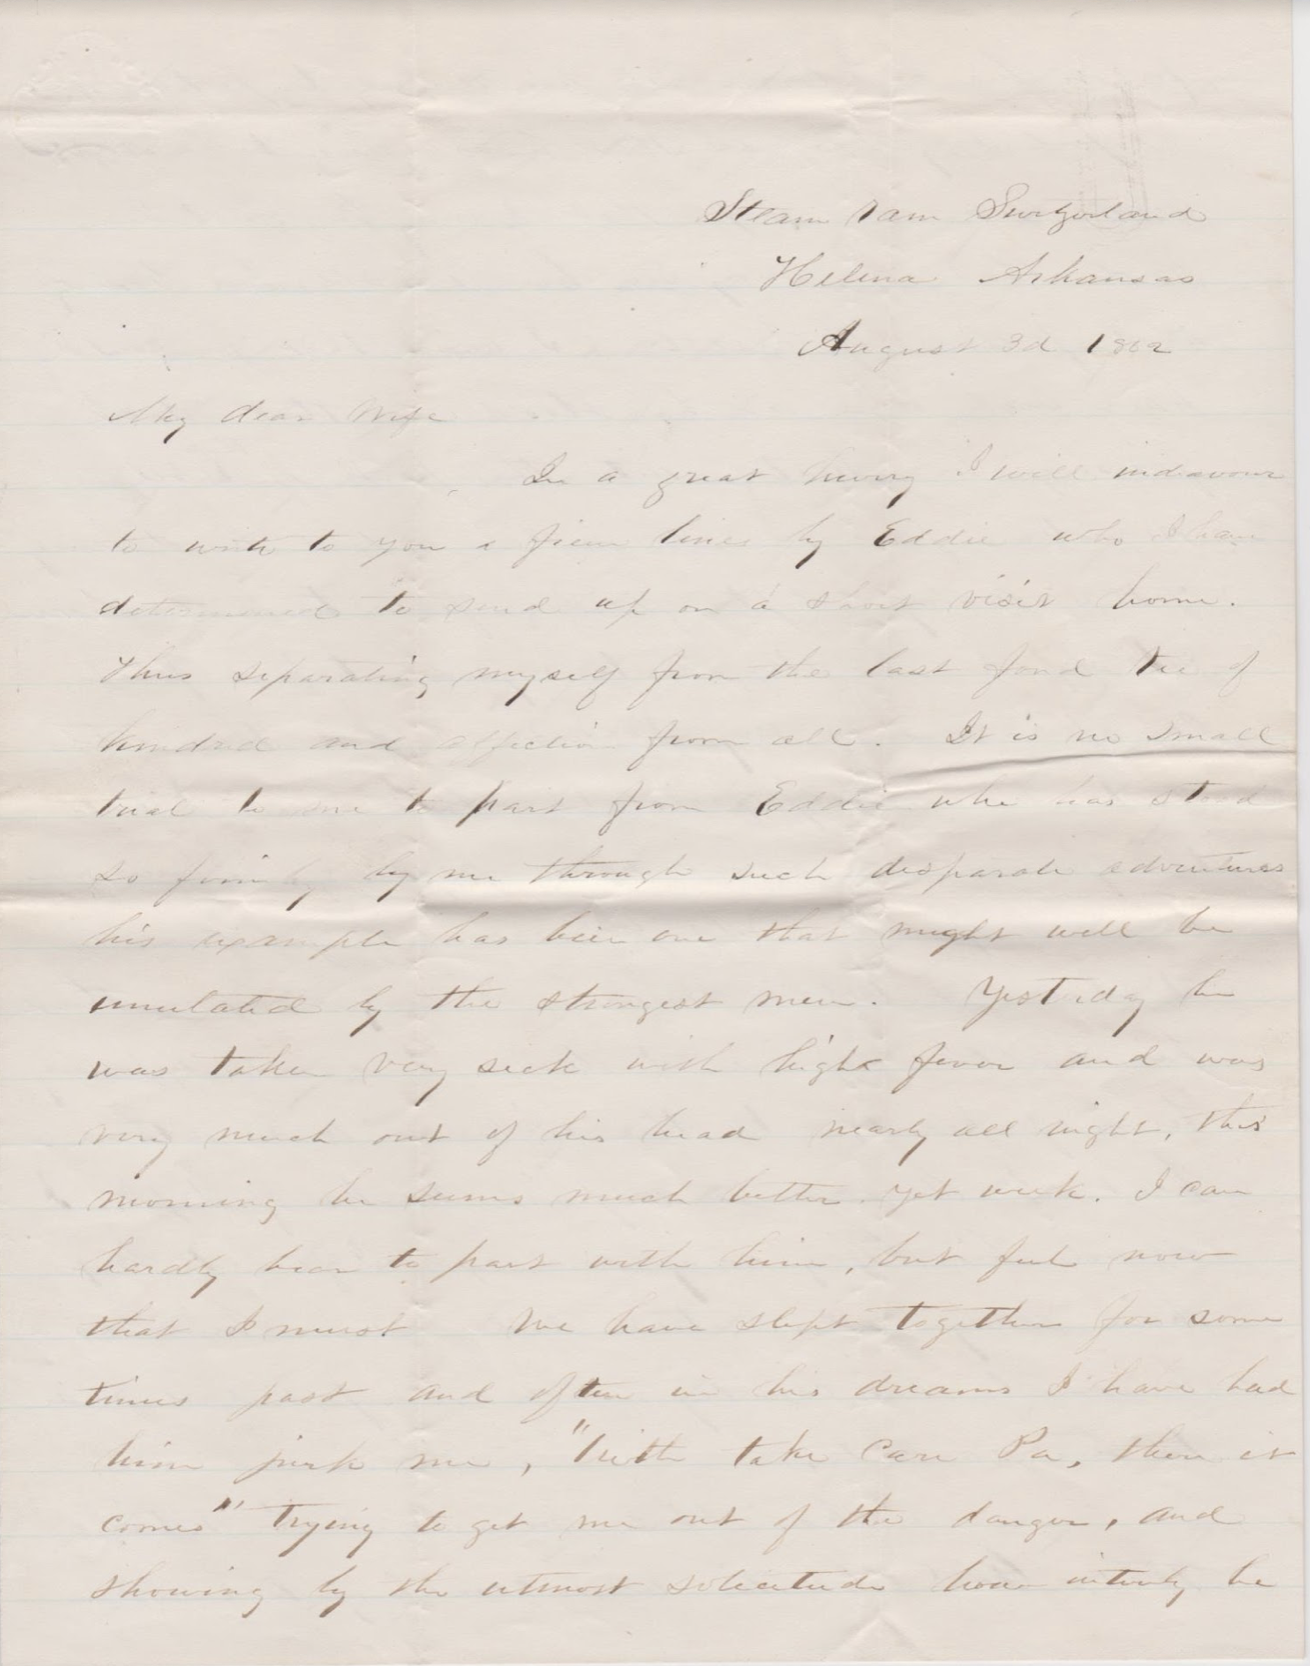 Steam ram Switzorland
Helena Arkansas
August 3d 1862
My dear Wife
In a great hurry I will indeavour
to write to you a fiew lines by Eddie who I have
determined to send up on a short visit home.
Thus separating myself from the last fond tie of
kindred and affection from all. It is no small
trial to me to part from Eddie who has stood
so firmly by me through such desparate adventures
his example has been one that might well be
imulated by the strongest men. Yesterday he
was taken very sick with high fever and was
very much out of his head nearly all night, this
morning he seems much better. yet week. I can
hardly bear to part with him, but feel now
that I must We have slept together for some
times past and often in his dreams I have had
him jirk me, "with take care Pa, there it
comes" trying to get me out of the danger, and
showing by the utmost solicitude how intenly he